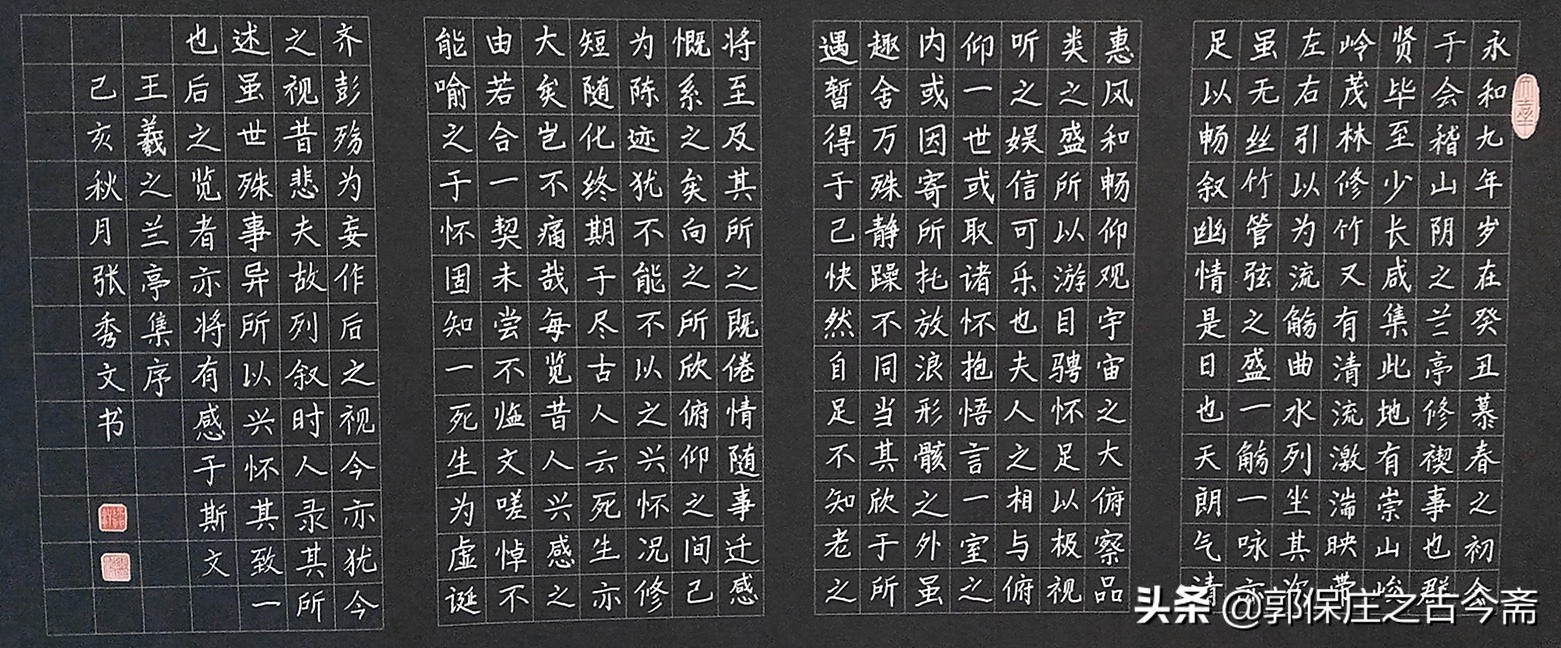 永和九年岁在癸丑慕春之初会
于会稽山阴之兰亭修禊事也群
贤毕至少长咸集此地有崇山峻
岭茂林修竹又有清流激湍映带
左右引以为流觞曲水列坐其次
虽无丝竹管弦之盛一觞一咏亦
足以畅叙幽情是日也天朗气清
惠风和畅仰观宇宙之大俯察品
类之盛所以游目骋怀足以极视
听之娱信可乐也夫人之相与俯
仰一世或取诸怀抱悟言一室之
内或因寄所托放浪形骸之外虽
趣舍万殊静躁不同当其欣于所
遇暂得于己快然自足不知老之
将至及其所之既倦情随事迁感
慨系之矣向之所欣俯仰之间己
为陈迹犹不能不以之兴怀况修
短随化终期于尽古人云死生亦
大矣岂不痛哉每览昔人兴感之
由若合一契未尝不临文嗟悼不
能喻之于怀固知一死生为虚诞
齐彭殇为妄作后之视今亦犹今
之视昔悲夫故列叙时人录其所
述虽世殊事异所以兴怀其致一
也后之览者亦将有感于斯文
王羲之兰亭集序
己亥秋月张秀文书
头条 @郭保庄之古今斋